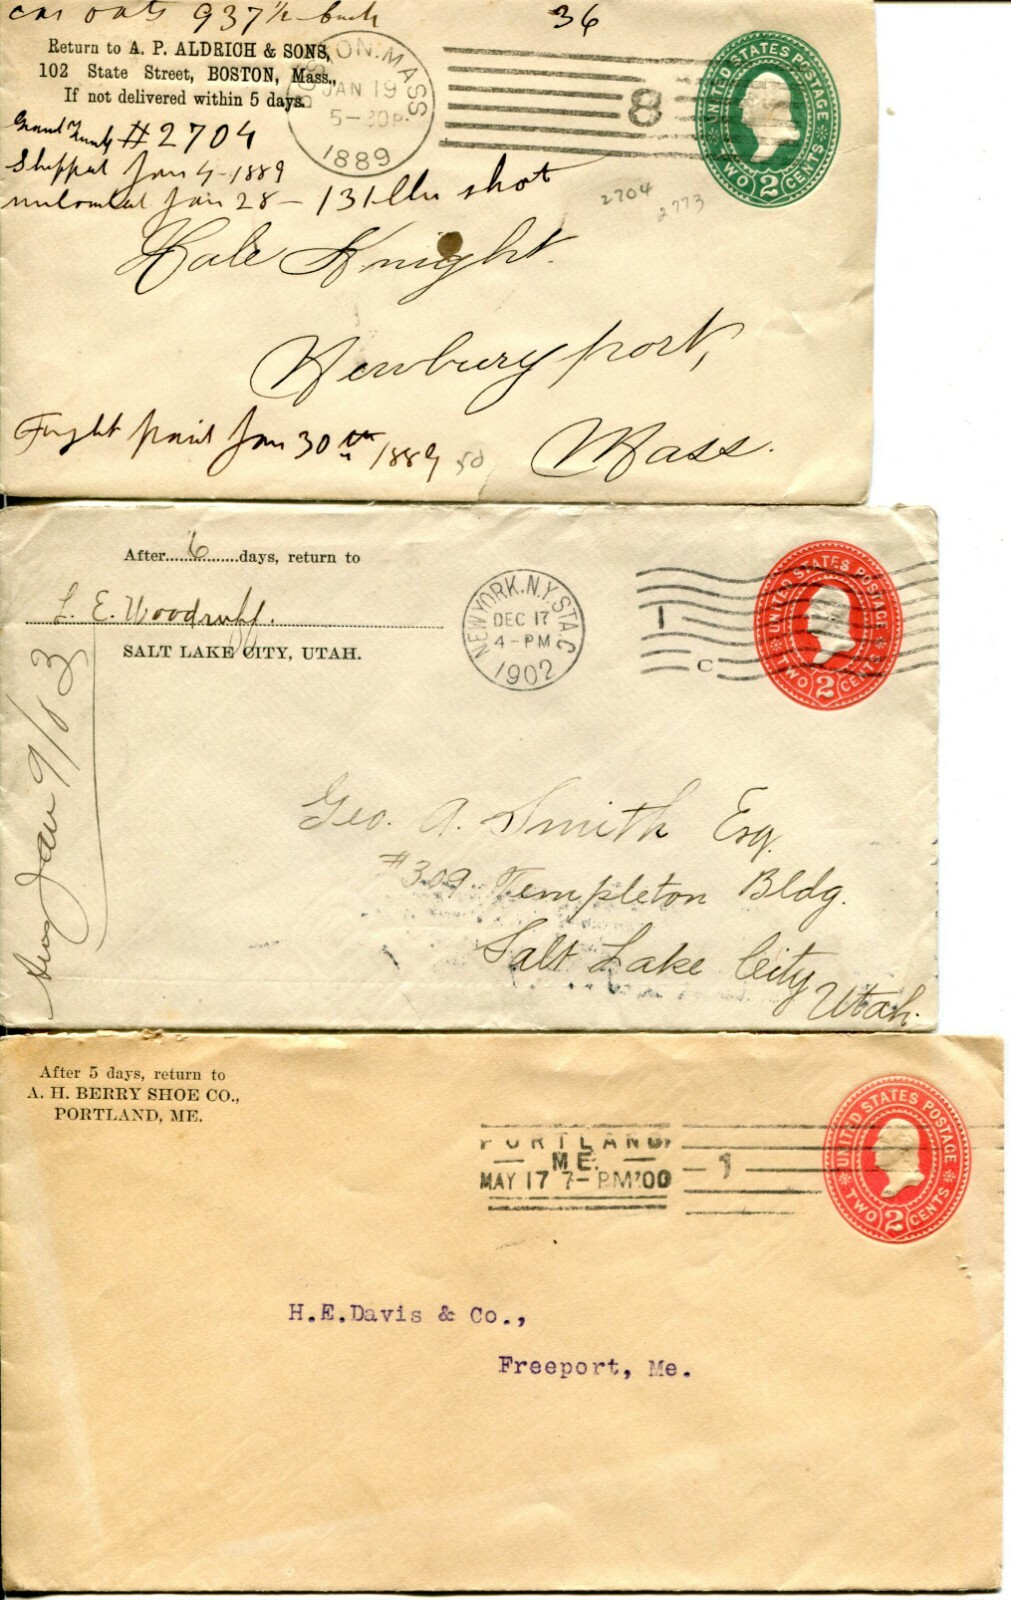 car oats 937 1/2 bush 36
Return to A. P. ALDRICH & SONS,
102 State Street, BOSTON, Mass.,
If not delivered within 5 days.
BOSTON. MASS
JAN 19
5-30P.
1889
8
UNITED STATES POSTAGE
TWO 2 CENTS
Grand Trunk #2704
Shipped Jan 4-1889
unloaded Jan 28 - 131 lbs short
2704
2773
Hale Knight.
Newburyport,
Mass.
Freight paid Jan 30th 1889 50
After 6 days, return to
L. E. Woodruff.
SALT LAKE CITY, UTAH.
NEW YORK. N.Y. STA. C
DEC 17
4-PM
1902
1
C
UNITED STATES POSTAGE
TWO 2 CENTS
Jan 9/03
Geo. A. Smith Esq.
#309 Templeton Bldg.
Salt Lake City
Utah.
After 5 days, return to
A. H. BERRY SHOE CO.,
PORTLAND, ME.
PORTLAND,
ME.
MAY 17 7-PM '00
1
UNITED STATES POSTAGE
TWO 2 CENTS
H.E.Davis & Co.,
Freeport, Me.